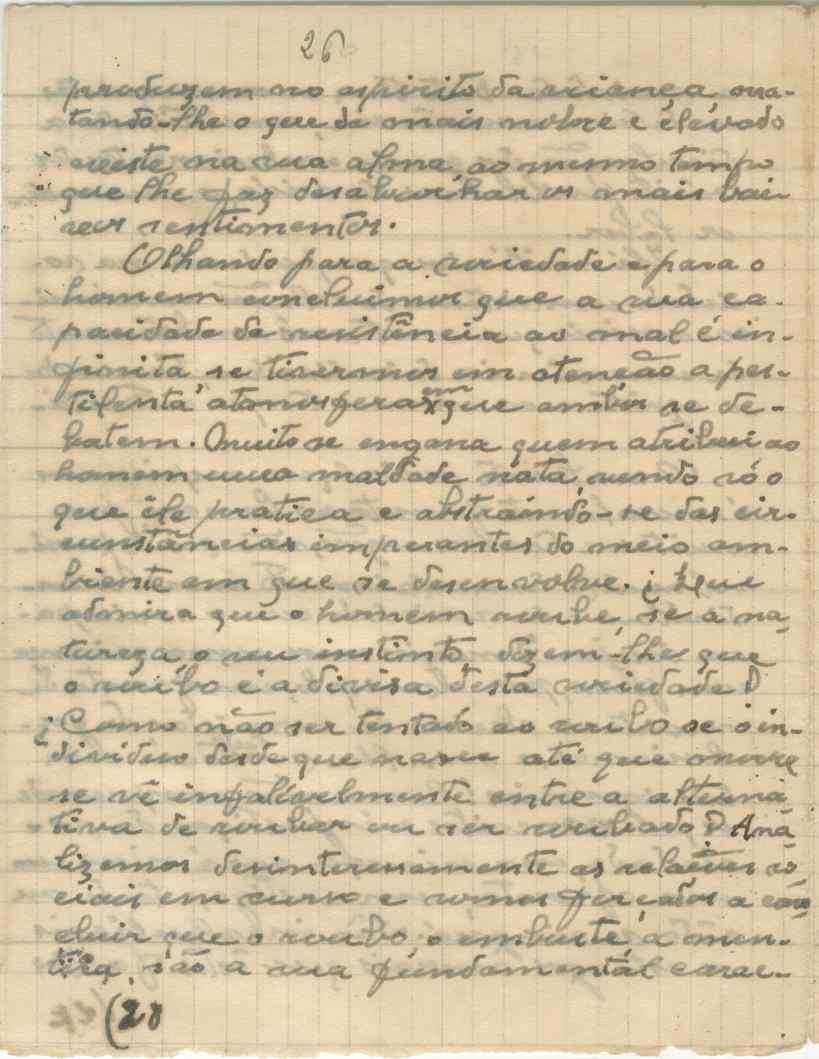 26
produzem no espirito da criança, ma-
tando-lhe o que de mais nobre e elevado
existe na sua alma, ao mesmo tempo
que lhe faz desabrochar os mais bai-
xos sentimentos.
Olhando para a sociedade e para o
homem concluimos que a sua ca-
pacidade de resistência ao mal é in-
finita se tivermos em atenção a pes-
tilenta atmosfera em que ambos se de-
batem. Muito se engana quem atribui ao
homem uma maldade nata, vendo só o
que êle pratica e abstraindo-se das cir-
cunstâncias imperantes do meio am-
biente em que se desenvolve. ¿ Que
admira que o homem roube, se a na-
tureza, o seu instinto, dizem-lhe que
o roubo é a divisa desta sociedade?
¿Como não ser tentado ao roubo se o in-
divíduo desde que nasce até que morre
se vê infalivelmente entre a alterna-
tiva de roubar ou ser roubado? Ana-
lizemos desinteressamente as relações so-
ciais em curso e somos forçados a con-
cluir que o roubo, o embuste, a men-
tira, são a sua fundamental carac-
(28